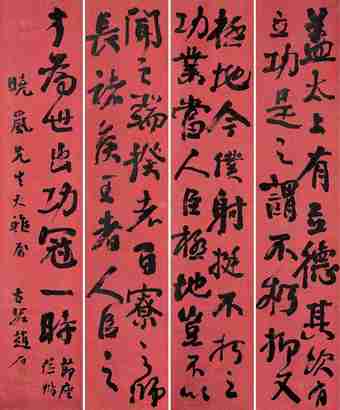 蓋太上有立德其次有
立功是之謂不朽抑又
極地今僕射挺不朽之
功業當人臣極地豈不以
聞之端揆者百寮之師
長諸侯王者人臣之
才為世出功冠一時
節座
位帖
曉嵐先生大雅屬
古泥趙石